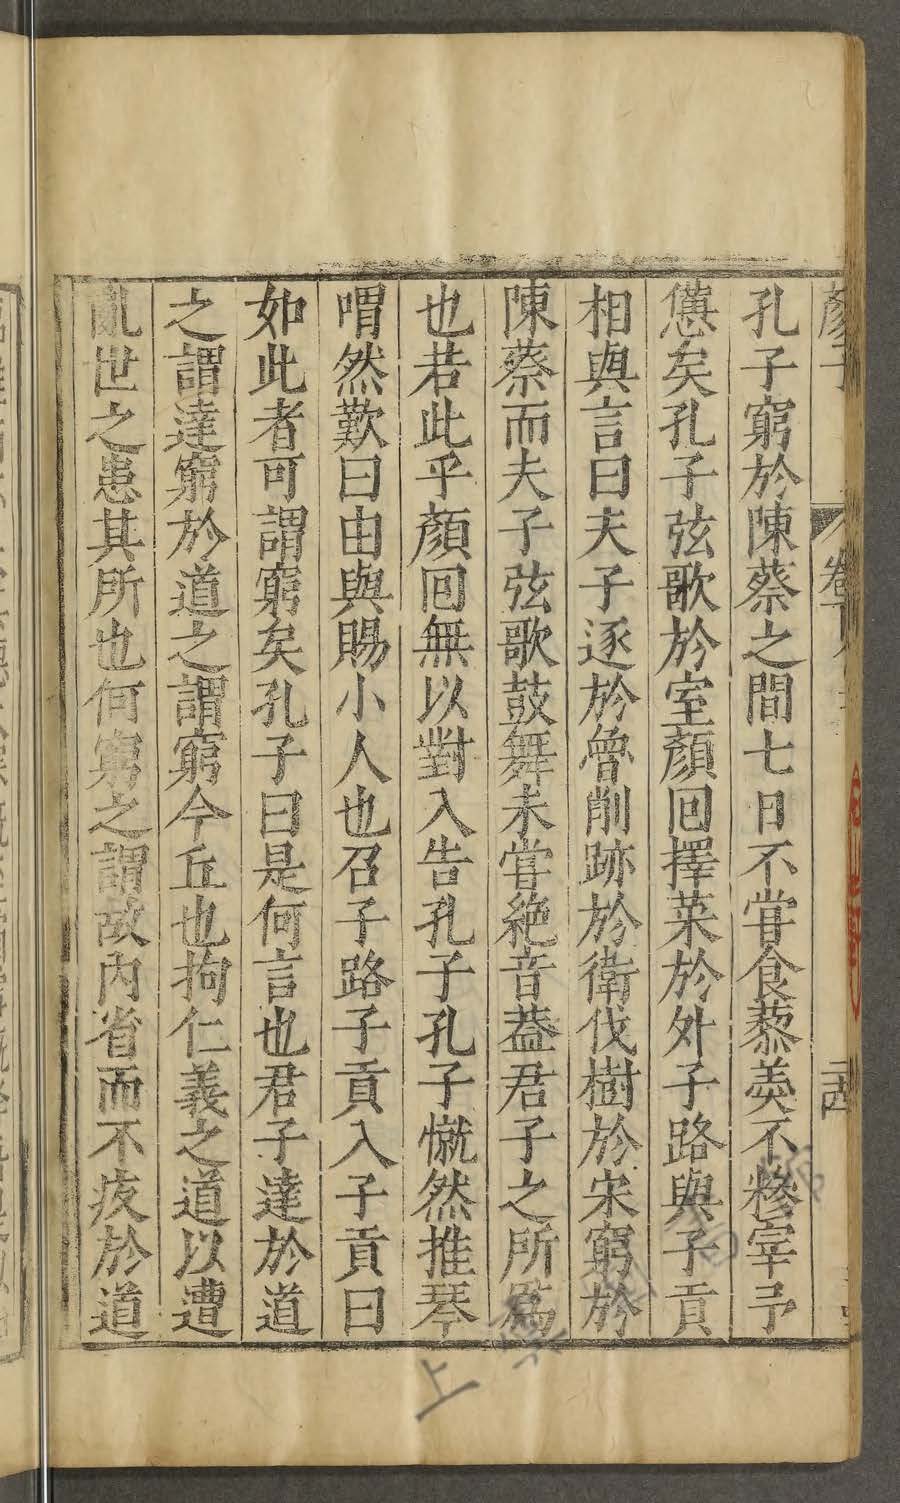 顏子
孔子窮於陳蔡之間七日不甞食藜羮不糝宰予
憊矣孔子弦歌於室顏回擇菜於外子路與子貢
相與言曰夫子逐於魯削跡於衛伐樹於宋窮於
陳蔡而夫子弦歌鼓舞未甞絶音葢君子之所爲
也若此乎顏回無以對入告孔子孔子愀然推琴
喟然歎曰由與賜小人也召子路子貢入子貢曰
如此者可謂窮矣孔子曰是何言也君子達於道
之謂達窮於道之謂窮今丘也拘仁義之道以遭
亂世之患其所也何窮之謂故內省而不疚於道